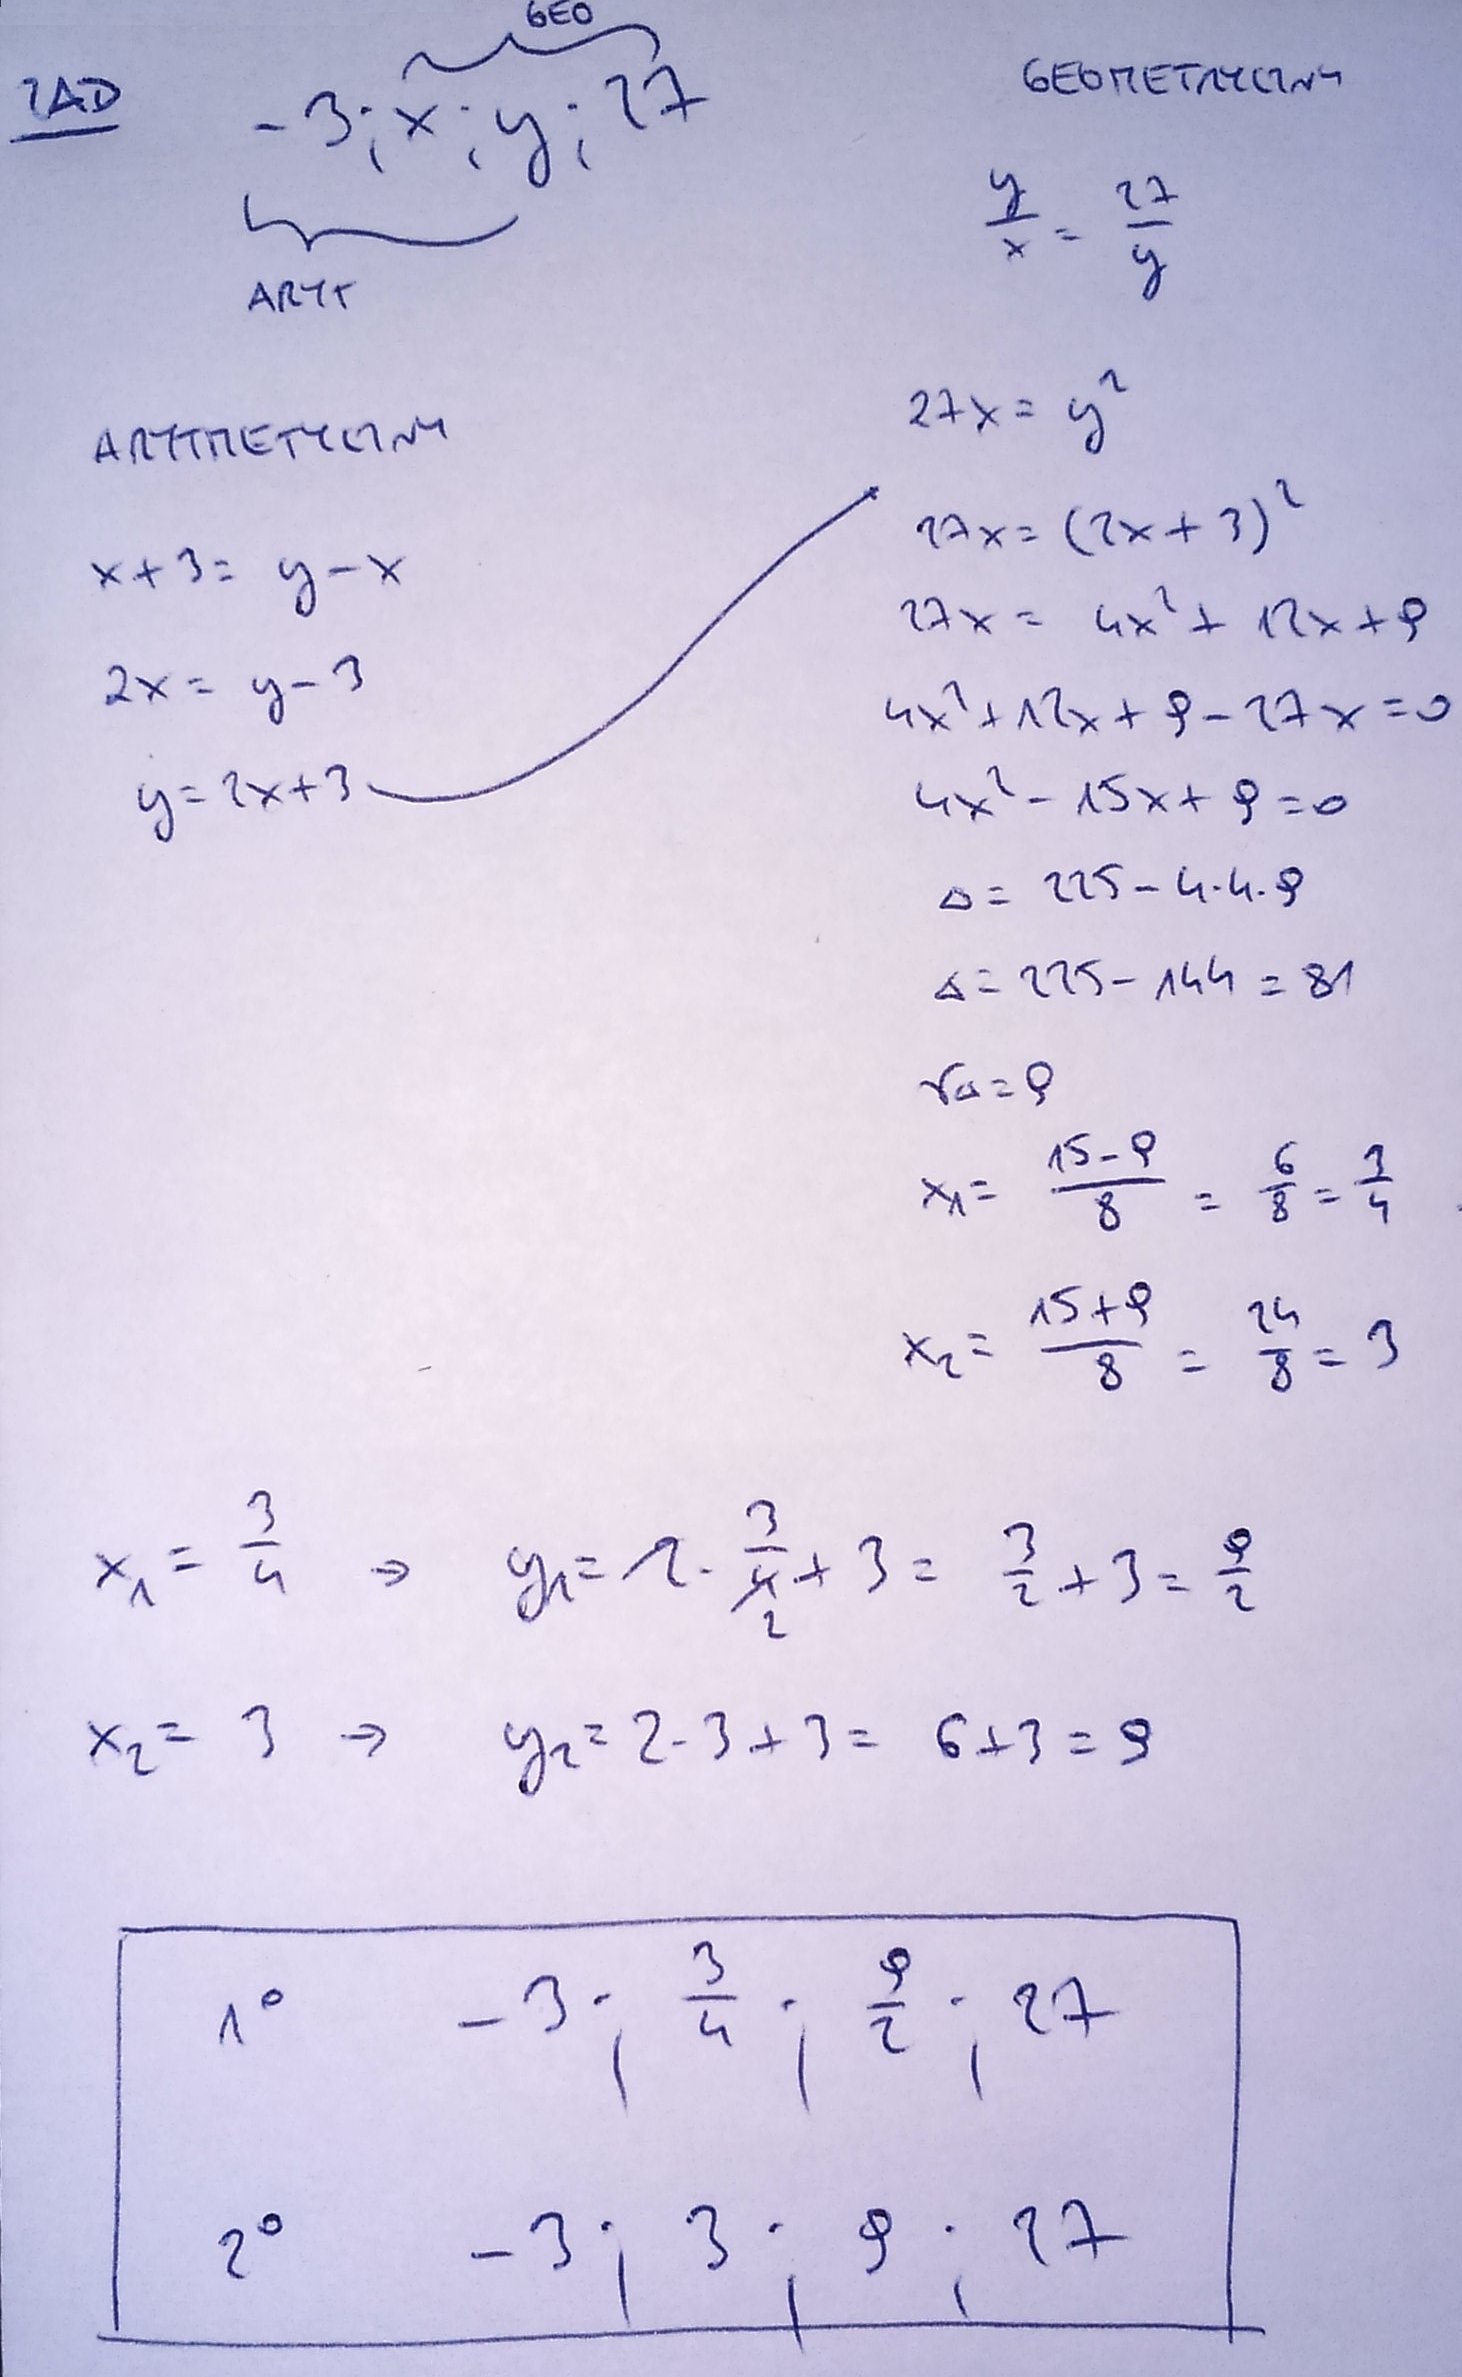 GEO
ZAD -3; x; y; 27
ARYT
ARYTMETYCZNY
x+3= y-x
2x= y-3
y= 2x+3
GEOMETRYCZNY
y/x = 27/y
27x= y²
27x= (2x+3)²
27x= 4x²+12x+9
4x²+12x+9-27x=0
4x²-15x+9=0
Δ= 225-4·4·9
Δ= 225-144=81
√Δ=9
x₁= (15-9)/8 = 6/8 = 3/4
x₂= (15+9)/8 = 24/8 = 3
x₁ = 3/4 → y₁= 2·3/4+3= 3/2+3= 9/2
x₂= 3 → y₂= 2·3+3= 6+3=9
1° -3; 3/4; 9/2; 27
2° -3; 3; 9; 27